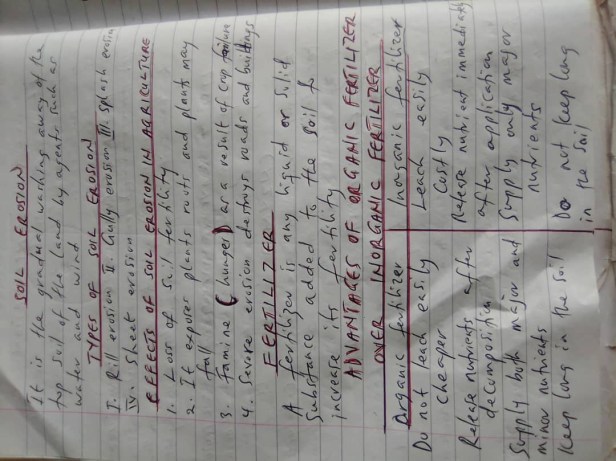 SOIL EROSION
It is the gradual washing away of the
top soil of the land by agents such as
water and wind
TYPES OF SOIL EROSION
I. Rill erosion II. Gully erosion III. Splash erosion
IV. Sheet erosion
EFFECTS OF SOIL EROSION IN AGRICULTURE
1. Loss of soil fertility
2. It exposes plants roots and plants may
fall
3. Famine (hunger) as a result of crop failure
4. Severe erosion destroys roads and buildings
FERTILIZER
A fertilizer is any liquid or solid
substance added to the soil to
increase its fertility
ADVANTAGES OF ORGANIC FERTILIZER
OVER INORGANIC FERTILIZER
Organic fertilizer
Do not leach easily
cheaper
Release nutrients after
decomposition
Supply both major and
minor nutrients
Keep long in the soil
Inorganic fertilizer
Leach easily
Costly
Release nutrient immediately
after application
Supply only major
nutrients
Do not keep long
in the soil